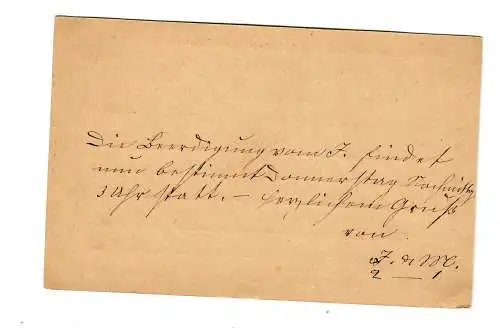 Die Beerdigung vom J. findet
nun bestimmt Donnerstag Nachmittag
3 Uhr statt. – Herzlichen Gruß
von
J. & M.